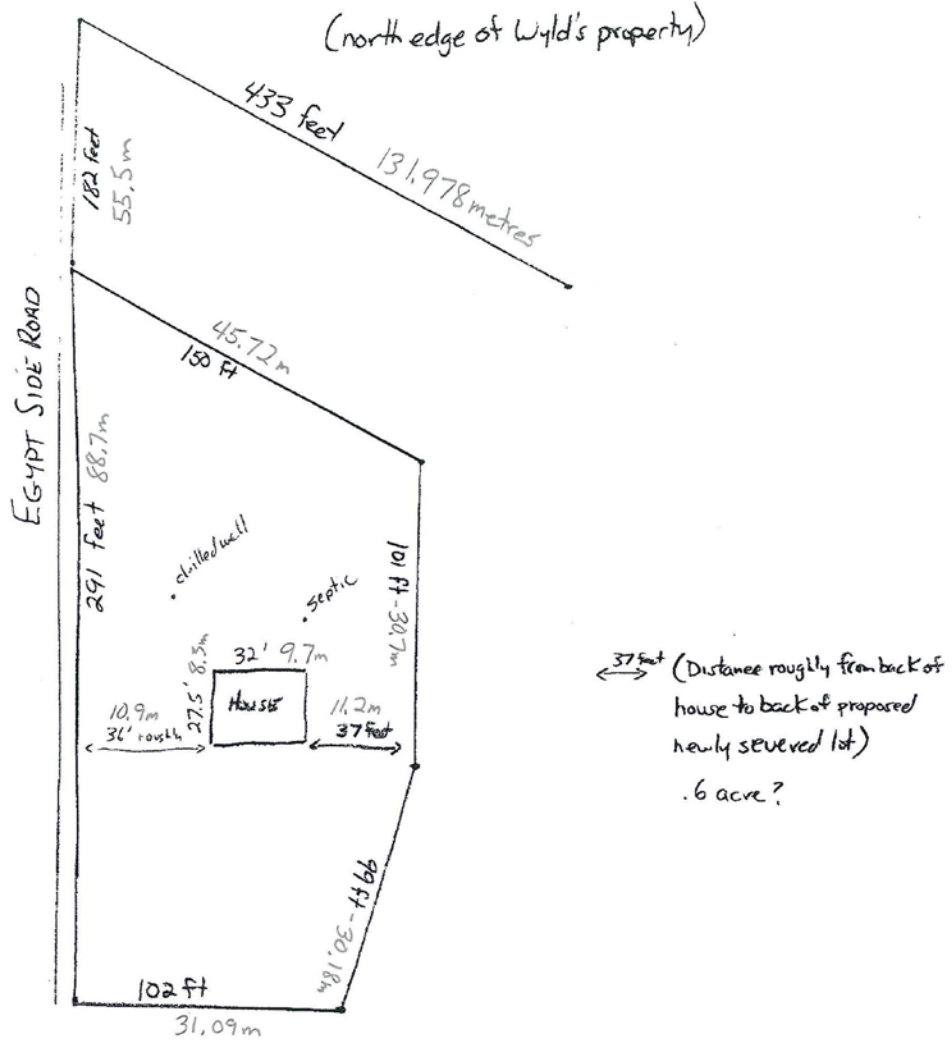 (north edge of Wyld's property)
433 feet
131.978 metres
182 feet
55.5m
EGYPT SIDE ROAD
45.72m
150 ft
291 feet 88.7m
drilled well
septic
101 ft - 30.7m
32' 9.7m
27.5' 8.3m
HOUSE
10.9m
36' roughly
11.2m
37 feet
37 feet (Distance roughly from back of
house to back of proposed
newly severed lot)
.6 acre?
99 ft - 30.18m
102 ft
31.09m